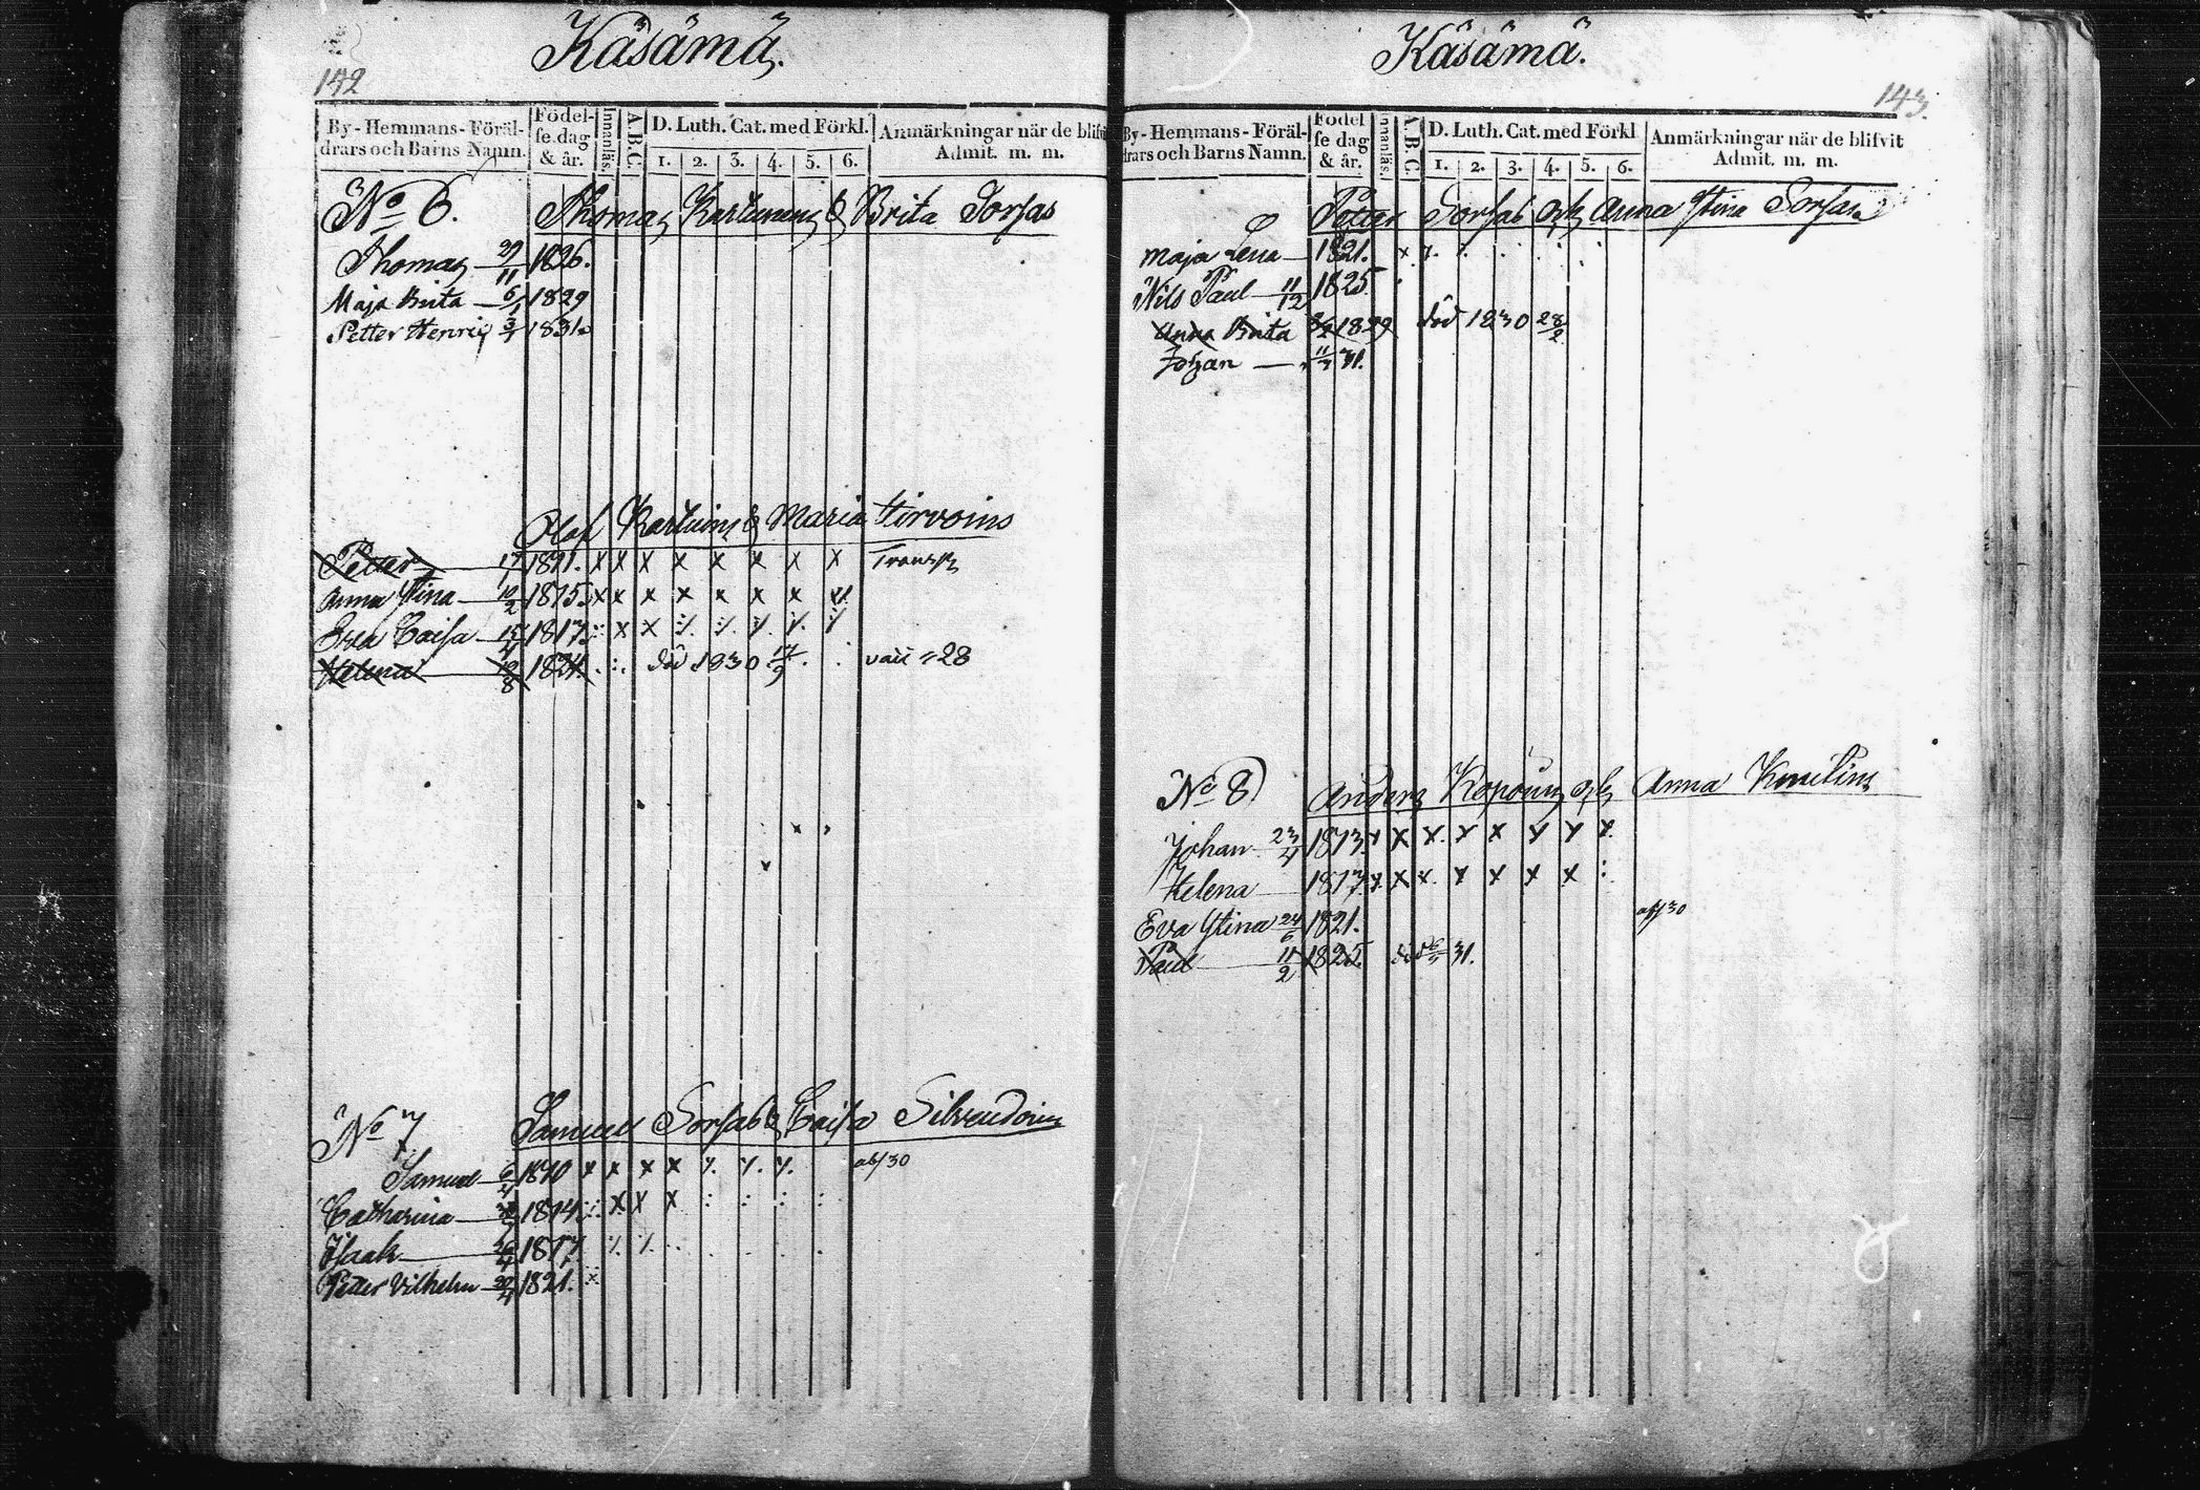 Käsämä.
142
By-Hemmans-Föräl-
drars och Barns Namn.
Födel-
se dag
& år.
Innanläs.
A.B.C.
D. Luth. Cat. med Förkl.
1. 2. 3. 4. 5. 6.
Anmärkningar när de blifvit
Admit. m. m.
No 6. Thomas & Brita Sorsas
Thomas 29/11 1826.
Maja Brita 6/1 1829
Petter Henric 3/1 1831.
Olof & Maria Hirvoins
Petter 1811. x x x x x x x x
Anna Stina 10/2 1815. x x x x x x x
Eva Caisa 1817. x x
Helena 18/8 1824. död 1830 28
No 7 Samuel Sorsas & Caisa
Samuel 6/4 1810 x x x x abs 30
Catharina 1814. x x x
Isaak 1817.
Petter Vilhelm 1821. x
Käsämä.
143.
By-Hemmans-Föräl-
drars och Barns Namn.
Födel
se dag
& år.
Innanläs.
A.B.C
D. Luth. Cat. med Förkl
1. 2. 3. 4. 5. 6.
Anmärkningar när de blifvit
Admit. m. m.
Petter Sorsas och Anna Stina Sorsas
Maja Lena 1821.
Nils Paul 11/12 1825.
Anna Brita 1829 död 1830 28/2
Johan 31.
No 8 Anders och Anna
Johan 23/4 1813. x x x x x x x x
Helena 1817. x x x x x x x
Eva Stina 24/6 1821. abs 30
Paul 11/2 1825. död 31.